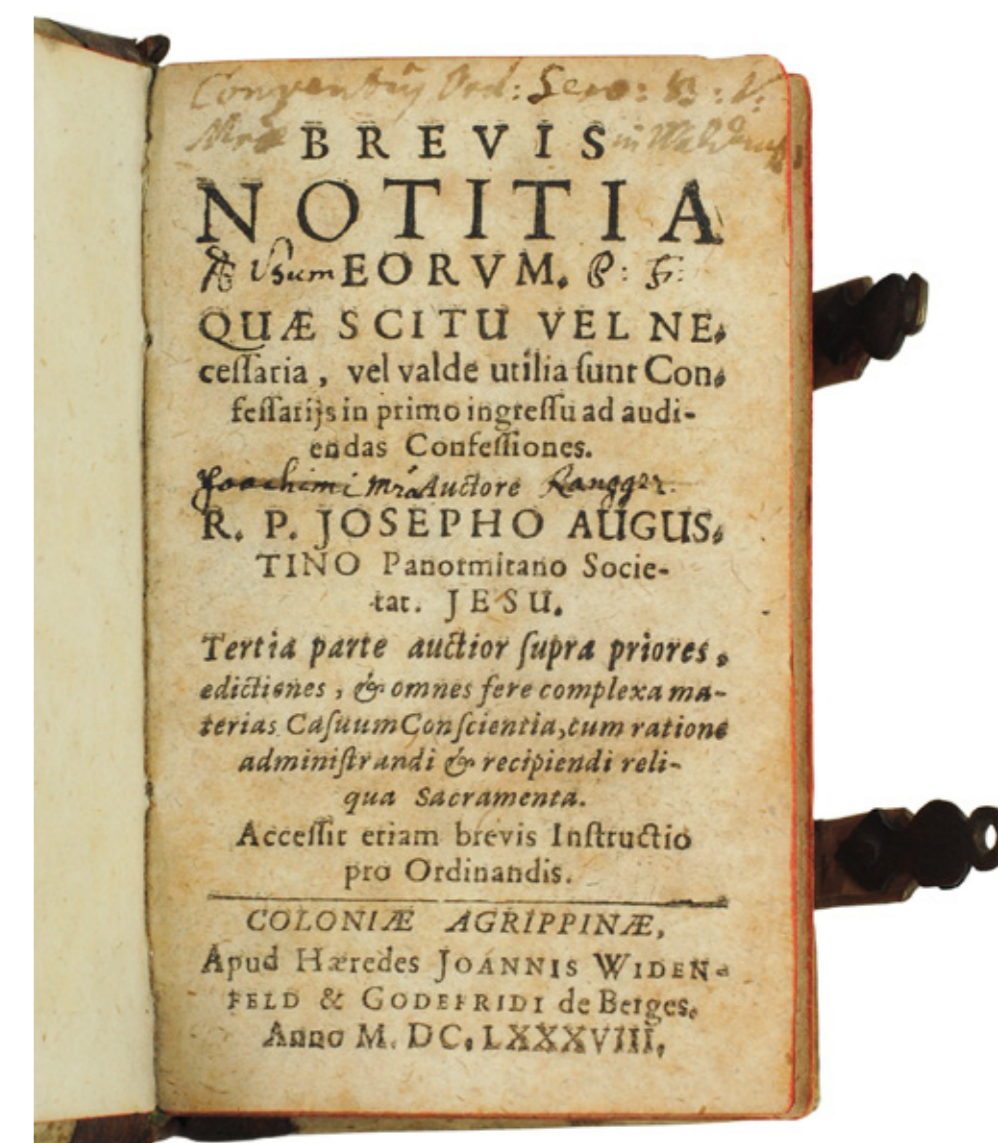 Conventûs Ord: Serv: B: V:
BREVIS
NOTITIA
Ad Usum EORVM. P: F:
QUÆ SCITU VEL NE-
ceſſaria, vel valde utilia ſunt Con-
feſſarijs in primo ingreſſu ad audi-
endas Confeſſiones.
Joachimi Mra Auctore Rangger.
R. P. JOSEPHO AUGUS-
TINO Panormitano Socie-
tat. JESU.
Tertia parte auctior ſupra priores,
edictiones, & omnes fere complexa ma-
terias Caſuum Conſcientia, cum ratione
adminiſtrandi & recipiendi reli-
qua Sacramenta.
Acceſſit etiam brevis Inſtructio
pro Ordinandis.
COLONIÆ AGRIPPINÆ,
Apud Hæredes JOANNIS WIDEN-
FELD & GODEFRIDI de Berges.
Anno M. DC. LXXXVIII.